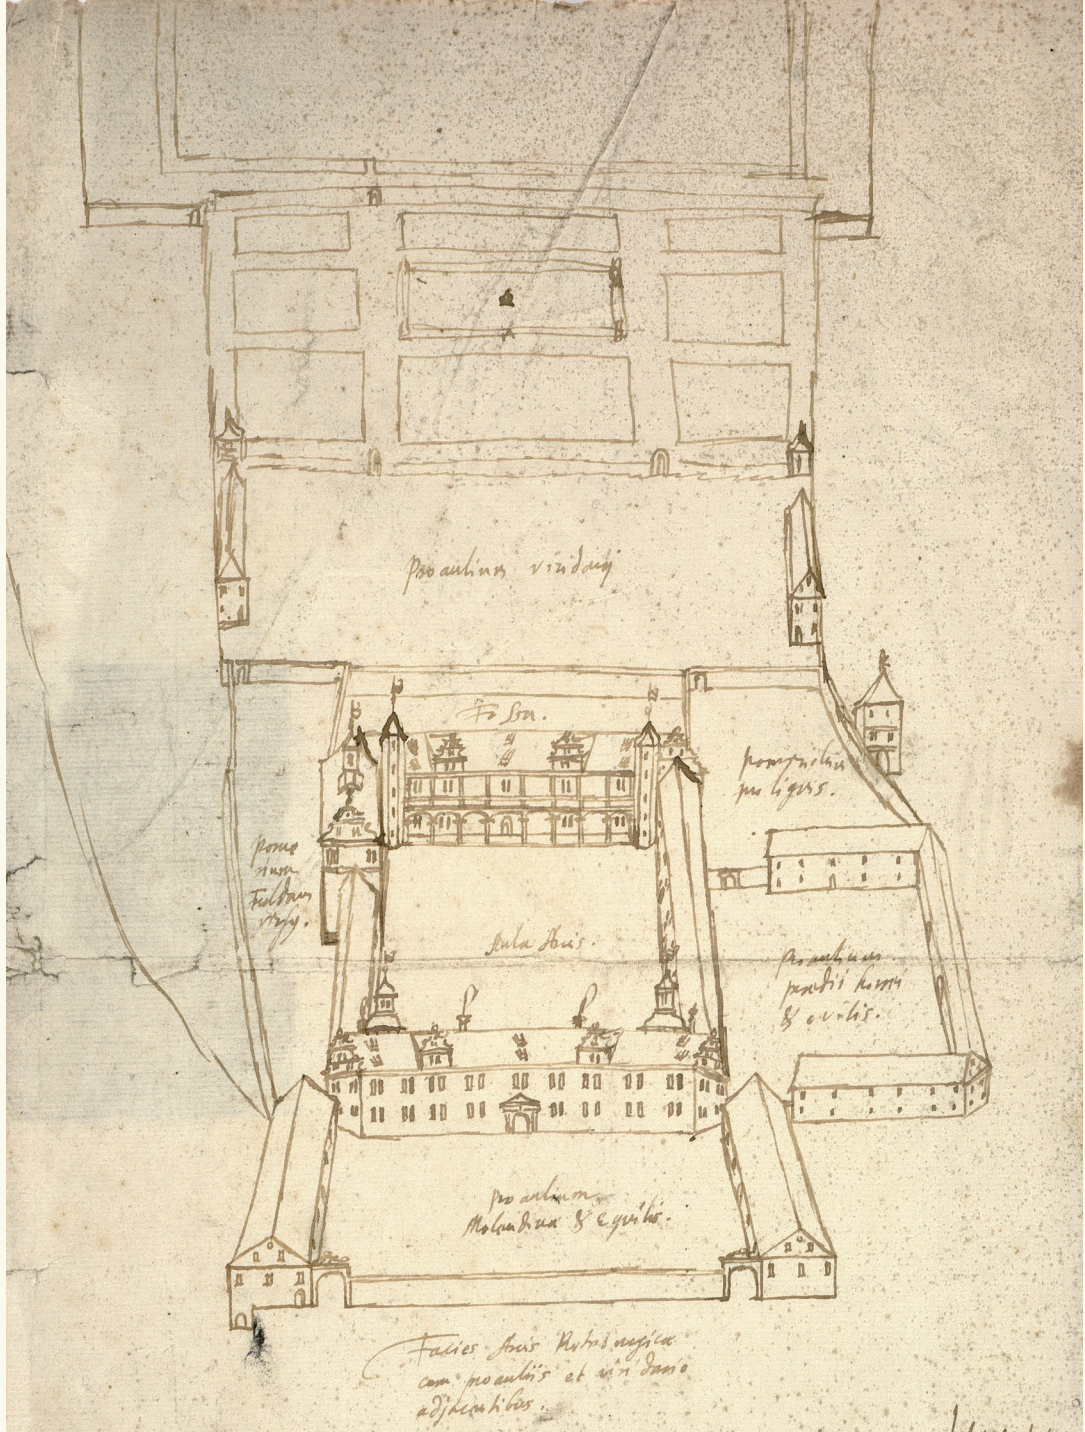 Proaulium viridarij
Fossa.
pro lignis.
Fuldam
Aula Arcis.
Proaulium
praedii
&
Proaulium
Molendina & Equilis.
Facies Arcis Rotenburgica
cum proauliis et viridario
adjacentibus.